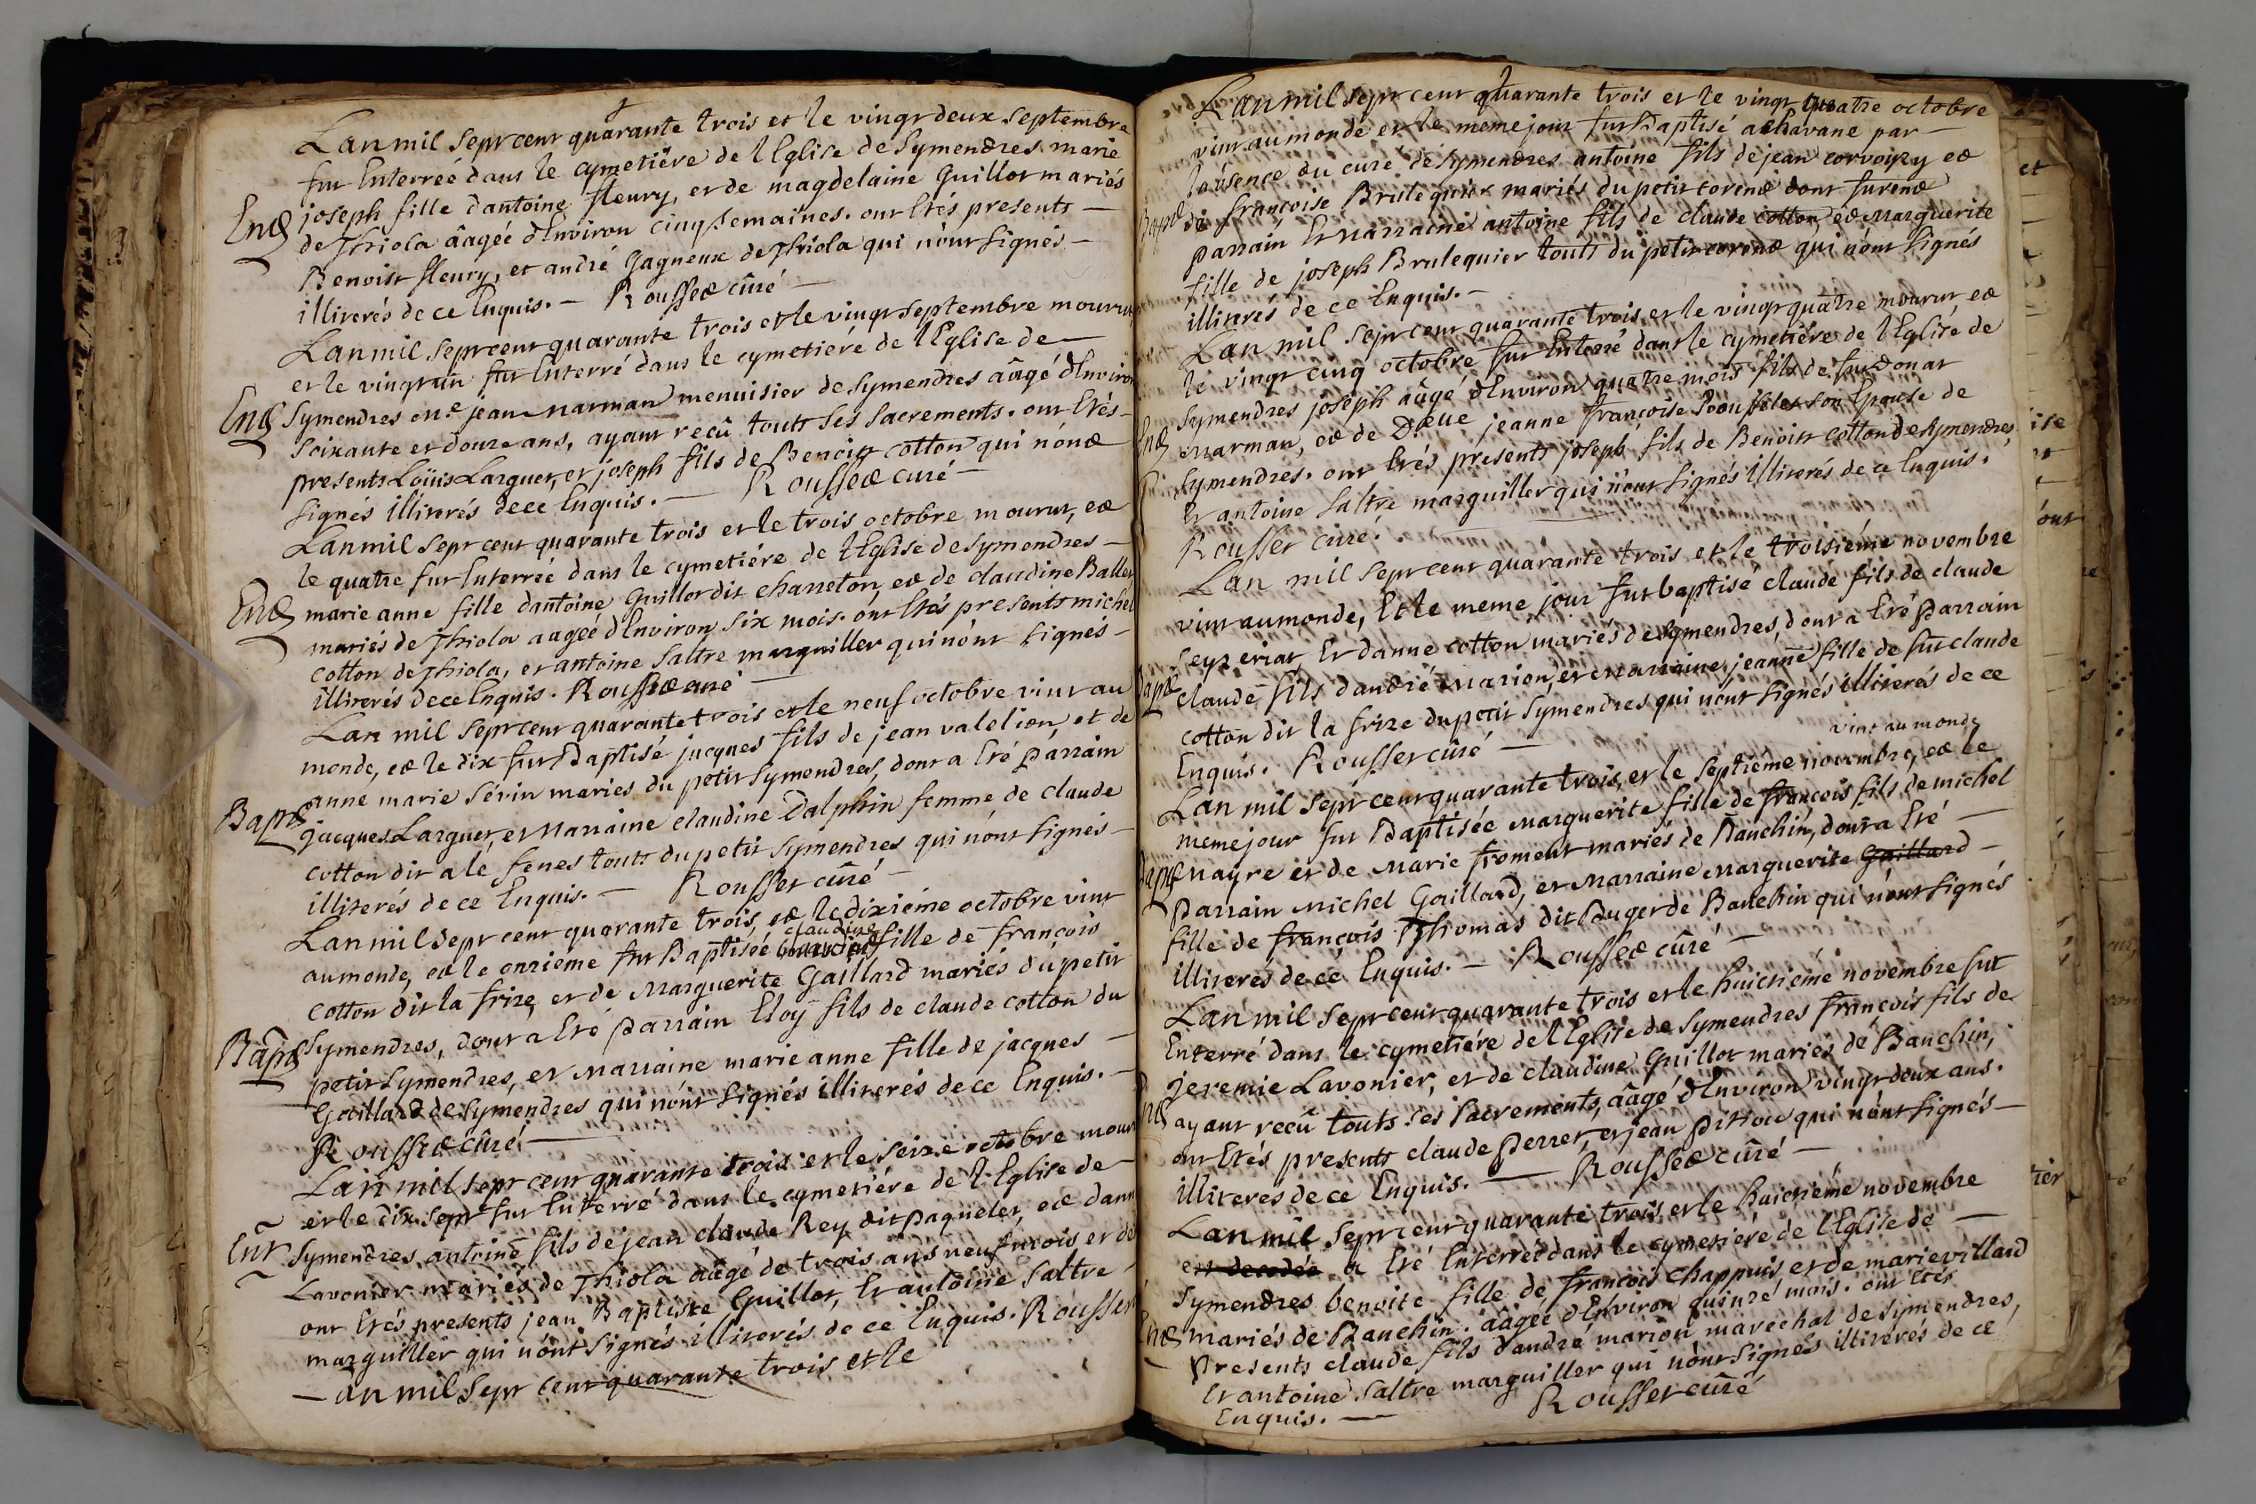 Lanmil sept cent quarante trois et le vingt deux septembre
fut Enterrée dans le cymetiére de l Eglise de Symendres marie
joseph fille dantoine fleury, et de magdelaine Guillot mariés
Ent
de Thiola âagéé dEnviron cinq semaines. ont Etés presents —
Benoist fleury, et andré Gagneux de Thiola qui nònt signés —
illiterés de ce Enquis. — Rousset cûré —
Lanmil sept cent quarante trois et le vingt septembre mourut
et le vingt un fut Enterré dans le cymetiéré de l Eglise de —
Ent Symendres jean marman menuisier de Symendres âagé dEnviron
soixante et douze ans, ayant reçû touts ses sacrements. ont Etés —
presents Loüis Larguet, et joseph fils de Benoist cotton qui nònt
signés illiterés de ce Enquis. — Rousset curé —
Lanmil sept cent quarante trois et le trois octobre mourut, et
le quatre fut Enterréé dans le cymetiére de l Eglise de Symendres —
Ent marie anne fille dantoine Guillot dit charreton, et de claudine Ballet
mariés de Thiola aagéé dEnviron six mois. ònt Etés presents michel
cotton de Thiola, et antoine Saltre marguiller qui nònt signés —
illiterés de ce Enquis. Rousset curé —
Lan mil sept cent quarante trois et le neuf octobre vint au
monde, et le dix fut Baptisé jacques fils de jean valelion, et de
anne marie Sérin maries du petit Symendres, dont a Eté Parrain
Bapt jacques Larguet, et marraine claudine Dalphin femme de claude
cotton dit a lé fenes touts du petit Symendres qui nònt signés —
illiterés de ce Enquis. — Rousset cûré —
Lanmil sept cent quarante trois, et le dixiéme octobre vint
claudine
au monde, et le onziéme fut Baptisée fille de françois
cotton dit la frize, et de Marguerite Gaillard mariés du petit
Bapt Symendres, dont a Eté Parrain Eloÿ fils de claude cotton du
petit Symendres, et marraine marie anne fille de jacques —
Gaillard de Symendres qui nònt signés illiterés de ce Enquis. —
Rousset cûré —
Lan mil sept cent quarante trois et le seize octobre mourut
et le dix sept fut Enterré dans le cymetiére de l Eglise de —
Ent Symendres antoine fils de jean claude Rey dit Paquelet, et danne
Lavonier mariés de Thiola âagé de trois ans neuf mois et de
ont Etés presents jean Baptiste Guillot, Et antoine Saltre
marguiller qui nònt signés illiterés de ce Enquis. Rousset
— an mil sept cent quarante trois et le
Lanmil sept cent quarante trois et le vingt quatre octobre
vint au monde et le meme jour fut Baptisé a chavane par —
labsence du curé de Symendres antoine fils de jean corvoizy et
Bapt de françoise Brulequier mariés du petit corent dont furent
Parrain Et marraine antoine fils de claude cotton, et marguerite
fille de joseph Brulequier touts du petit corent qui nònt signés
illiterés de ce Enquis. —
Lan mil sept cent quarante trois, et le vingt quatre mourut et
le vingt cinq octobre fut Enterré dans le cymetiére de l Eglise de
Symendres joseph âagé dEnviron quatre mois fils de donat
Ent marman, et de jeanne françoise son Epouse de
Symendres. ont Etés presents joseph fils de Benoist cotton de Symendres
Et antoine Saltre marguiller qui nònt signés illiterés de ce Enquis.
Rousset curé.
Lan mil sept cent quarante trois et le troisiéme novembre
vint au monde, Et le meme jour fut baptisé claude fils de claude
Seyzeriat, Et danne cotton mariés de Symendres, dont a Eté Parrain
Bapt claude fils dandré marion, et marraine jeanne fille de fut claude
cotton dit la frize du petit Symendres qui nònt signés illiterés de ce
Enquis. Rousset cûré —
vint au monde
Lan mil sept cent quarante trois, et le septiéme novembre, et le
meme jour fut Baptisée marguerite fille de françois fils de michel
Bapt Mayre et de Marie froment mariés de Banchin, dont a Eté —
Parrain michel Gaillard, et marraine marguerite Gaillard —
fille de françois Thomas dit de Banchin qui nònt signés
illiterés de cé Enquis. — Rousset cûré —
Lanmil sept cent quarante trois et le huictiéme novembre fut
Enterré dans le cymetiére de l Eglise de Symendres françois fils de
jeremie Lavonier, et de claudine Guillot mariés de Banchin,
Ent ayant reçû touts ses sacrements, âagé dEnviron vingt deux ans.
ont Etés presents claude Perret, et jean Pittion qui nònt signés —
illiteres de ce Enquis. — Rousset cûré —
Lan mil sept cent quarante trois, et le huictiéme novembre
est decedée a Eté Enterréé dans le cymetiére de l Eglise de —
Symendres benoite fille de françois chappuis et de marie villard
Ent mariés de Banchin. âagéé dEnviron quinzé mois. ont Etés
Presents claude fils dandré marion maréchal de Symendres,
Et antoine Saltre marguiller qui nònt signés illiterés de ce
Enquis. — Rousset cûré